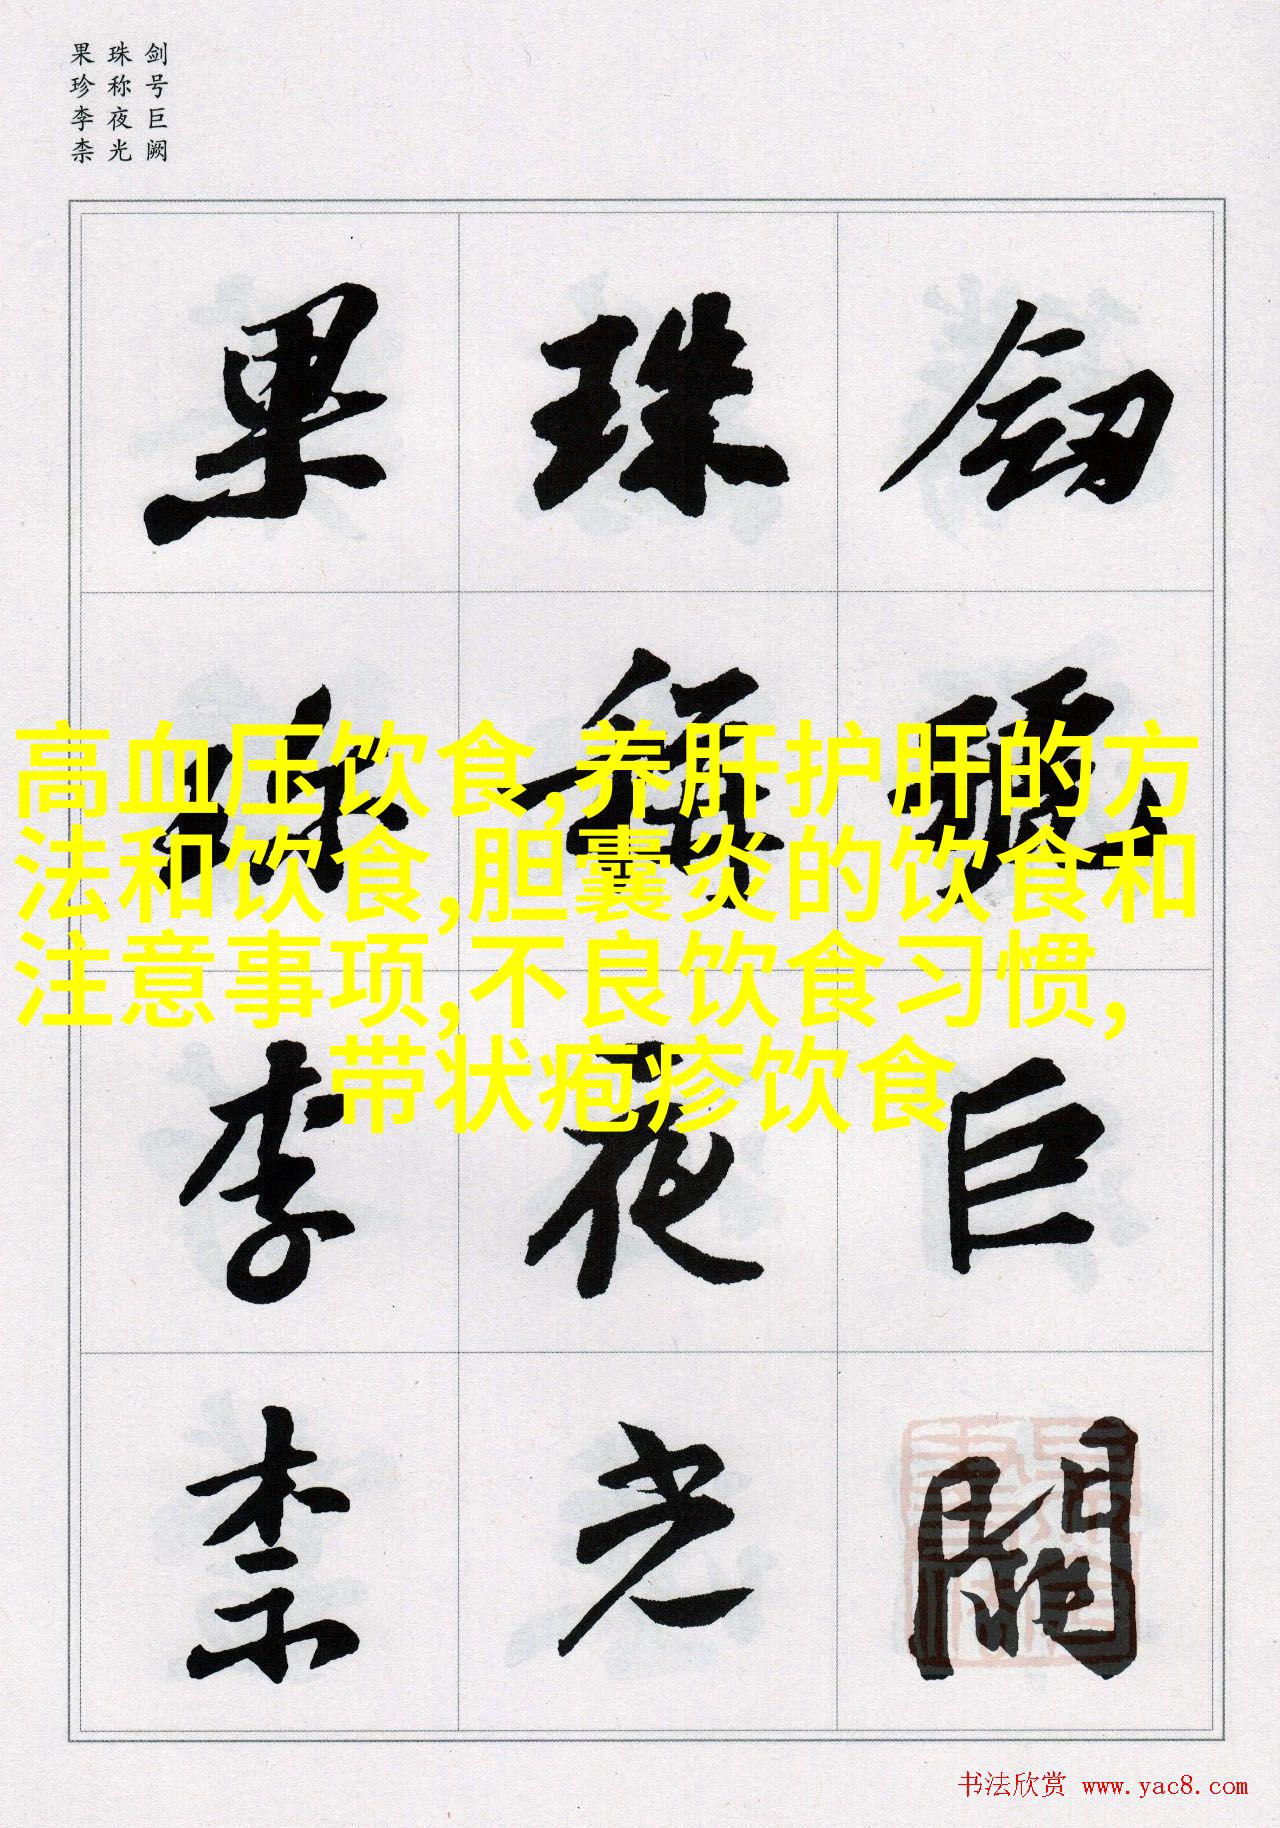 剑号巨阙
珠称夜光
果珍李柰
劒號巨闕
珠稱夜光
果珍李柰
高血压饮食,养肝护肝的方
法和饮食,胆囊炎的饮食和
注意事项,不良饮食习惯,
带状疱疹饮食
书法欣赏 www.yac8.com